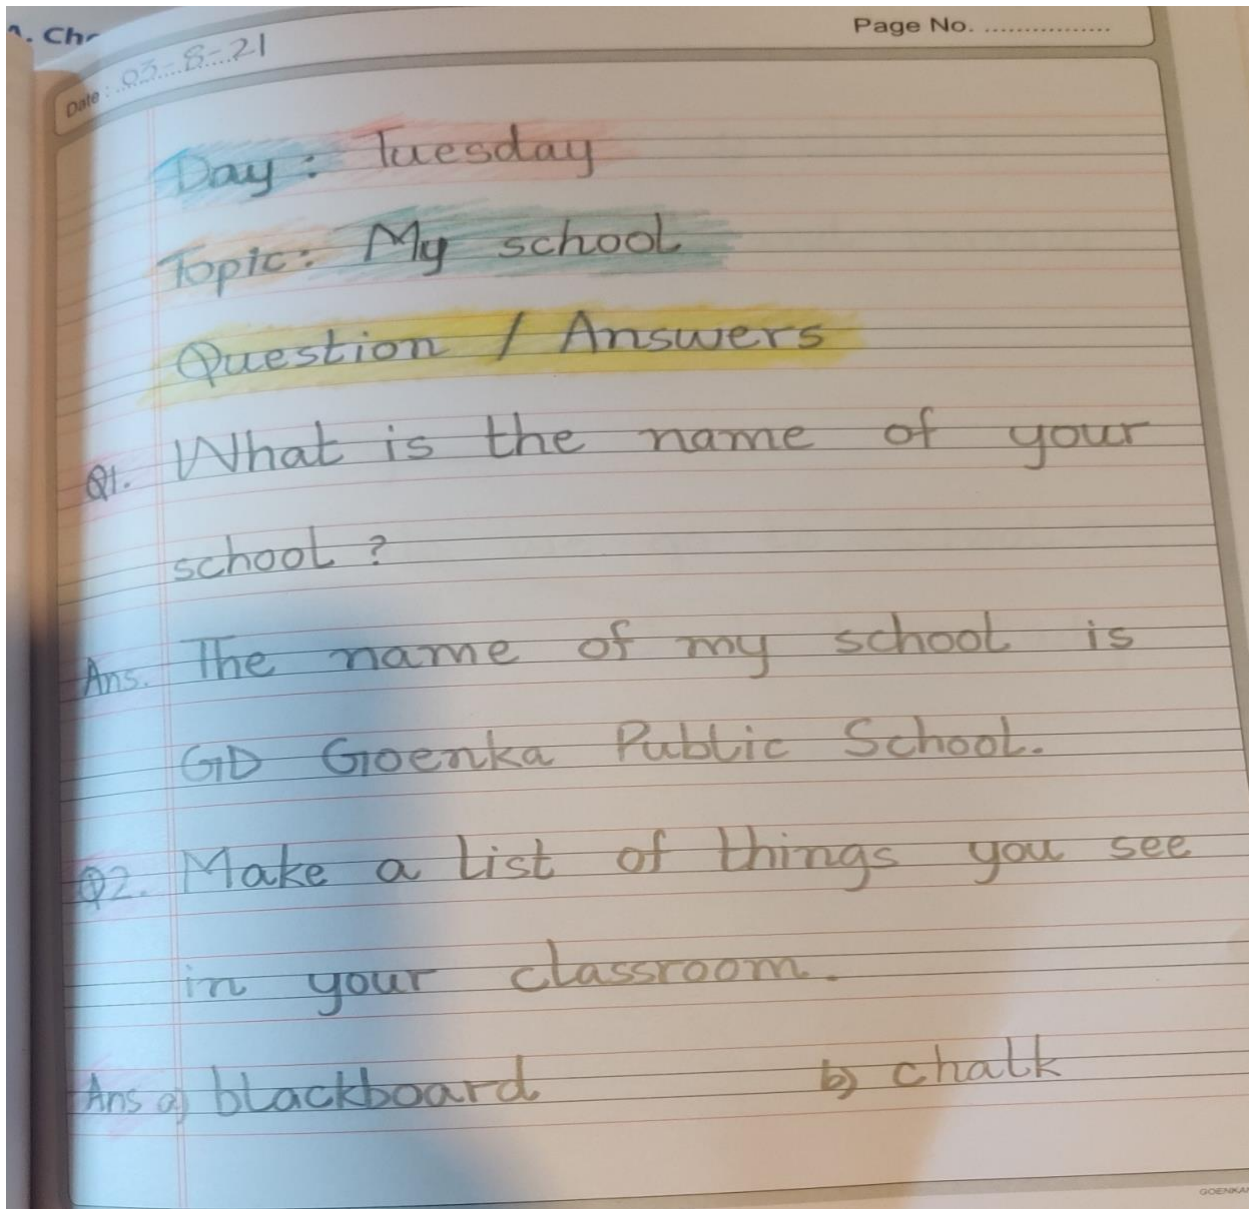 Page No. ................
Date : 03-8-21
Day : Tuesday
Topic : My school
Question / Answers
Q1. What is the name of your
school ?
Ans. The name of my school is
GD Goenka Public School.
Q2. Make a list of things you see
in your classroom.
Ans a) blackboard b) chalk